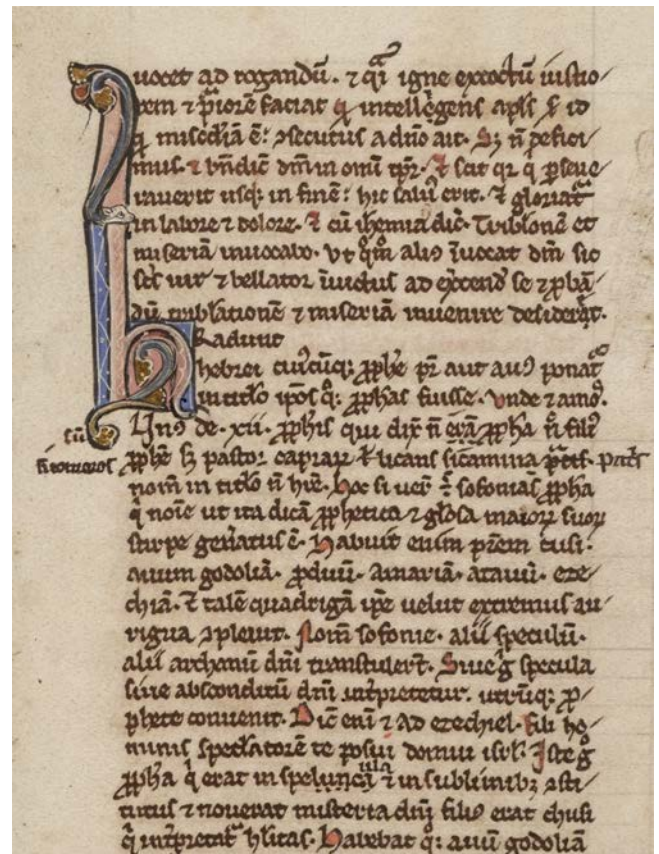 uocet ad rogandū. ⁊ q̄i igne excoctū iustio/
rem ⁊ p̄iorē faciat q̄ intellēgens apl̄s
q̄ misc̄diā ē: ↄsecutus a dn̄o ait. S; n̄ defici
mus. ⁊ bn̄dic̄ dm̄ in omī tp̄r. ⁊ scit qr̄ q̄ ꝑseue
rauerit usq; in finē: hic saluꝰ erit. ⁊ gloriat̄
in labore ⁊ dolore. ⁊ cū ihemia dic̄. Tribl̄onē et
miseriā inuocabo. Vt q̄m̄ aliꝰ īuocat dm̄ sic
sc̄s uir ⁊ bellator īuictus ad exc̄cend̄ se ⁊ ꝓbā
dū tribl̄ationē ⁊ miseriā inuenire desiderat̄.
Radunt
hebrei cuiꝰcūq; ꝓph̄e pr̄ aut auꝰ ponat̄
in titl̄o ip̄os q̄: ꝓph̄as fuisse. Vnde ⁊ amoꝰ.
Vnꝰ de .xii. ꝓph̄is qui dix̄ n̄ erā ꝓph̄a n̄ filiꝰ
sū
ꝓph̄e s; pastor caprarꝝ uellicans sicamina
nom̄ in titl̄o n̄ h̄t. Hoc si uer̄ ē: sofonias ꝓph̄a
q̄ noīe ut ita dicā ꝓph̄etico ⁊ gl̄osa maiorꝝ suorꝝ
stirpe gen̄atus ē. Habuit enim pr̄em cusi.
auum godoliā. ꝓauū. amariā. atauū. eze/
chiā. ⁊ talē quadrigā ip̄e uelut extremus au/
riga ↄpleuit. Nom̄ sofonie. alii speculū.
alii archanū dn̄i transtuler̄t. Siue g̊ specula
siue absconditū dn̄i int̄pretetur. utrūq; ꝓ/
phete conuenit. Dic̄ enī ⁊ ad ezechiel. fili ho/
minis speclatorē te posui domui isrl̄. Iste g̊
ꝓph̄a q̄ erat in speluncā ⁊ in sublimib; ↄsti/
tutus ⁊ nouerat misteria dn̄i filiꝰ erat chusi
q̄ int̄pretat̄ h̄litas. Habebat q̄: auū godoliā